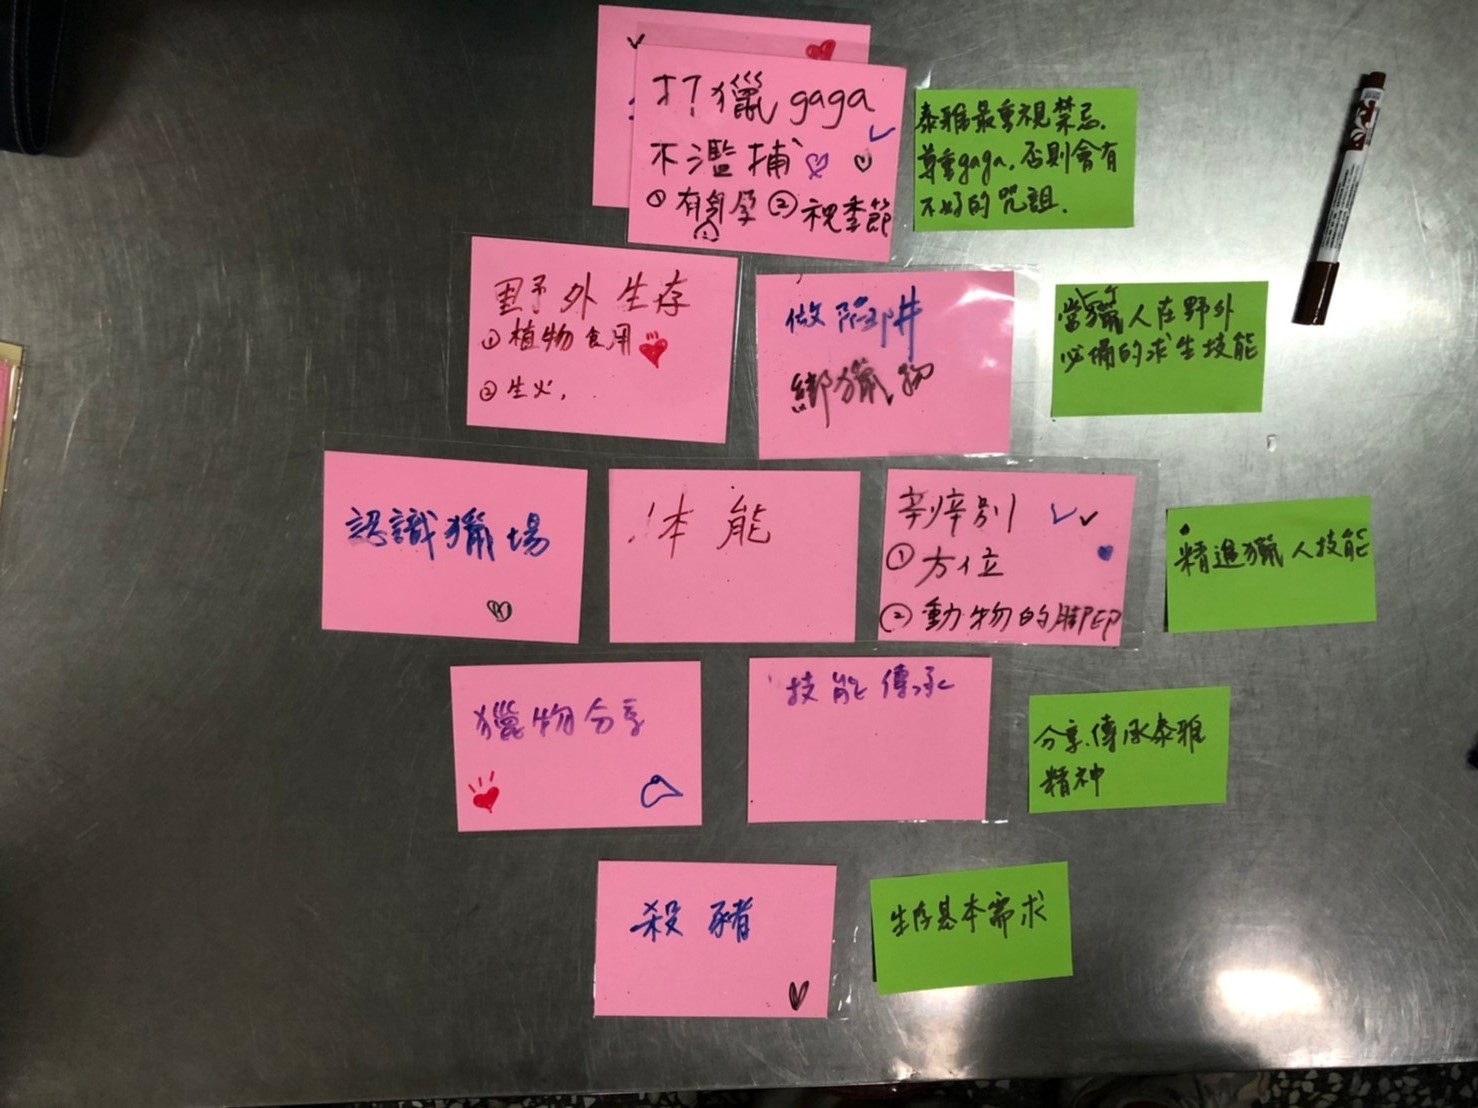 打獵gaga
不濫捕
①有身孕 ②視季節
泰雅最重視禁忌.
尊重gaga,否則會有
不好的咒詛.
野外生存
①植物食用
②生火.
做陷阱
綁獵物
當獵人在野外
必備的求生技能
認識獵場
体能
辨別
①方位
②動物的腳印
精進獵人技能
獵物分享
技能傳承
分享.傳承泰雅
精神
殺豬
生存基本需求